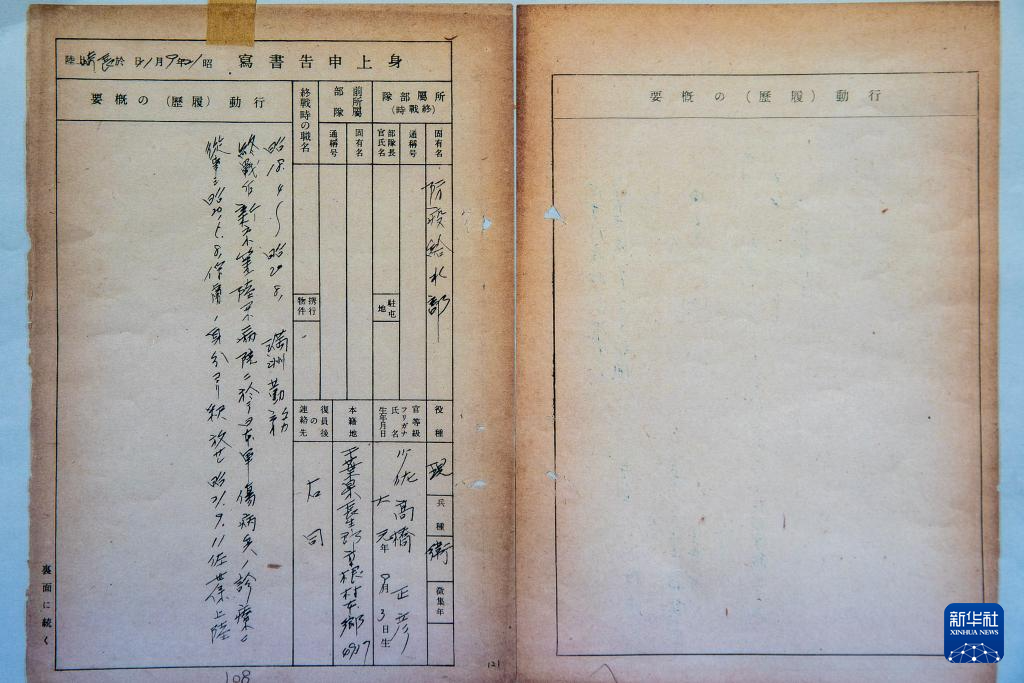 身上申告書寫
昭21年9月21日 於 長崎 上陸
所屬部隊
(終戰時)
固有名
防疫給水部
通稱号
部隊長
官氏名
駐屯地
前所屬
部隊
固有名
通稱号
終戰時の職名
携行
物件
役種
現
兵種
衛
徵集年
官等級
フリガナ
氏名
生年月日
少佐
高橋 正彦
大 元年 9月 3日生
本籍地
千葉県長生郡
村本郷
4917
復員後
の
連絡先
右同
行動(履歷)の概要
昭18.4〜昭20.8. 滿洲勤務
終戰后 陸軍病院ニ於テ日本軍傷病兵ノ診療ニ
從事ス 昭20. 8. ノ身分ヨリ釈放セ 昭21.9.11佐世保上陸
裏面に続く
108
121
行動(履歷)の概要
新华社
XINHUA NEWS